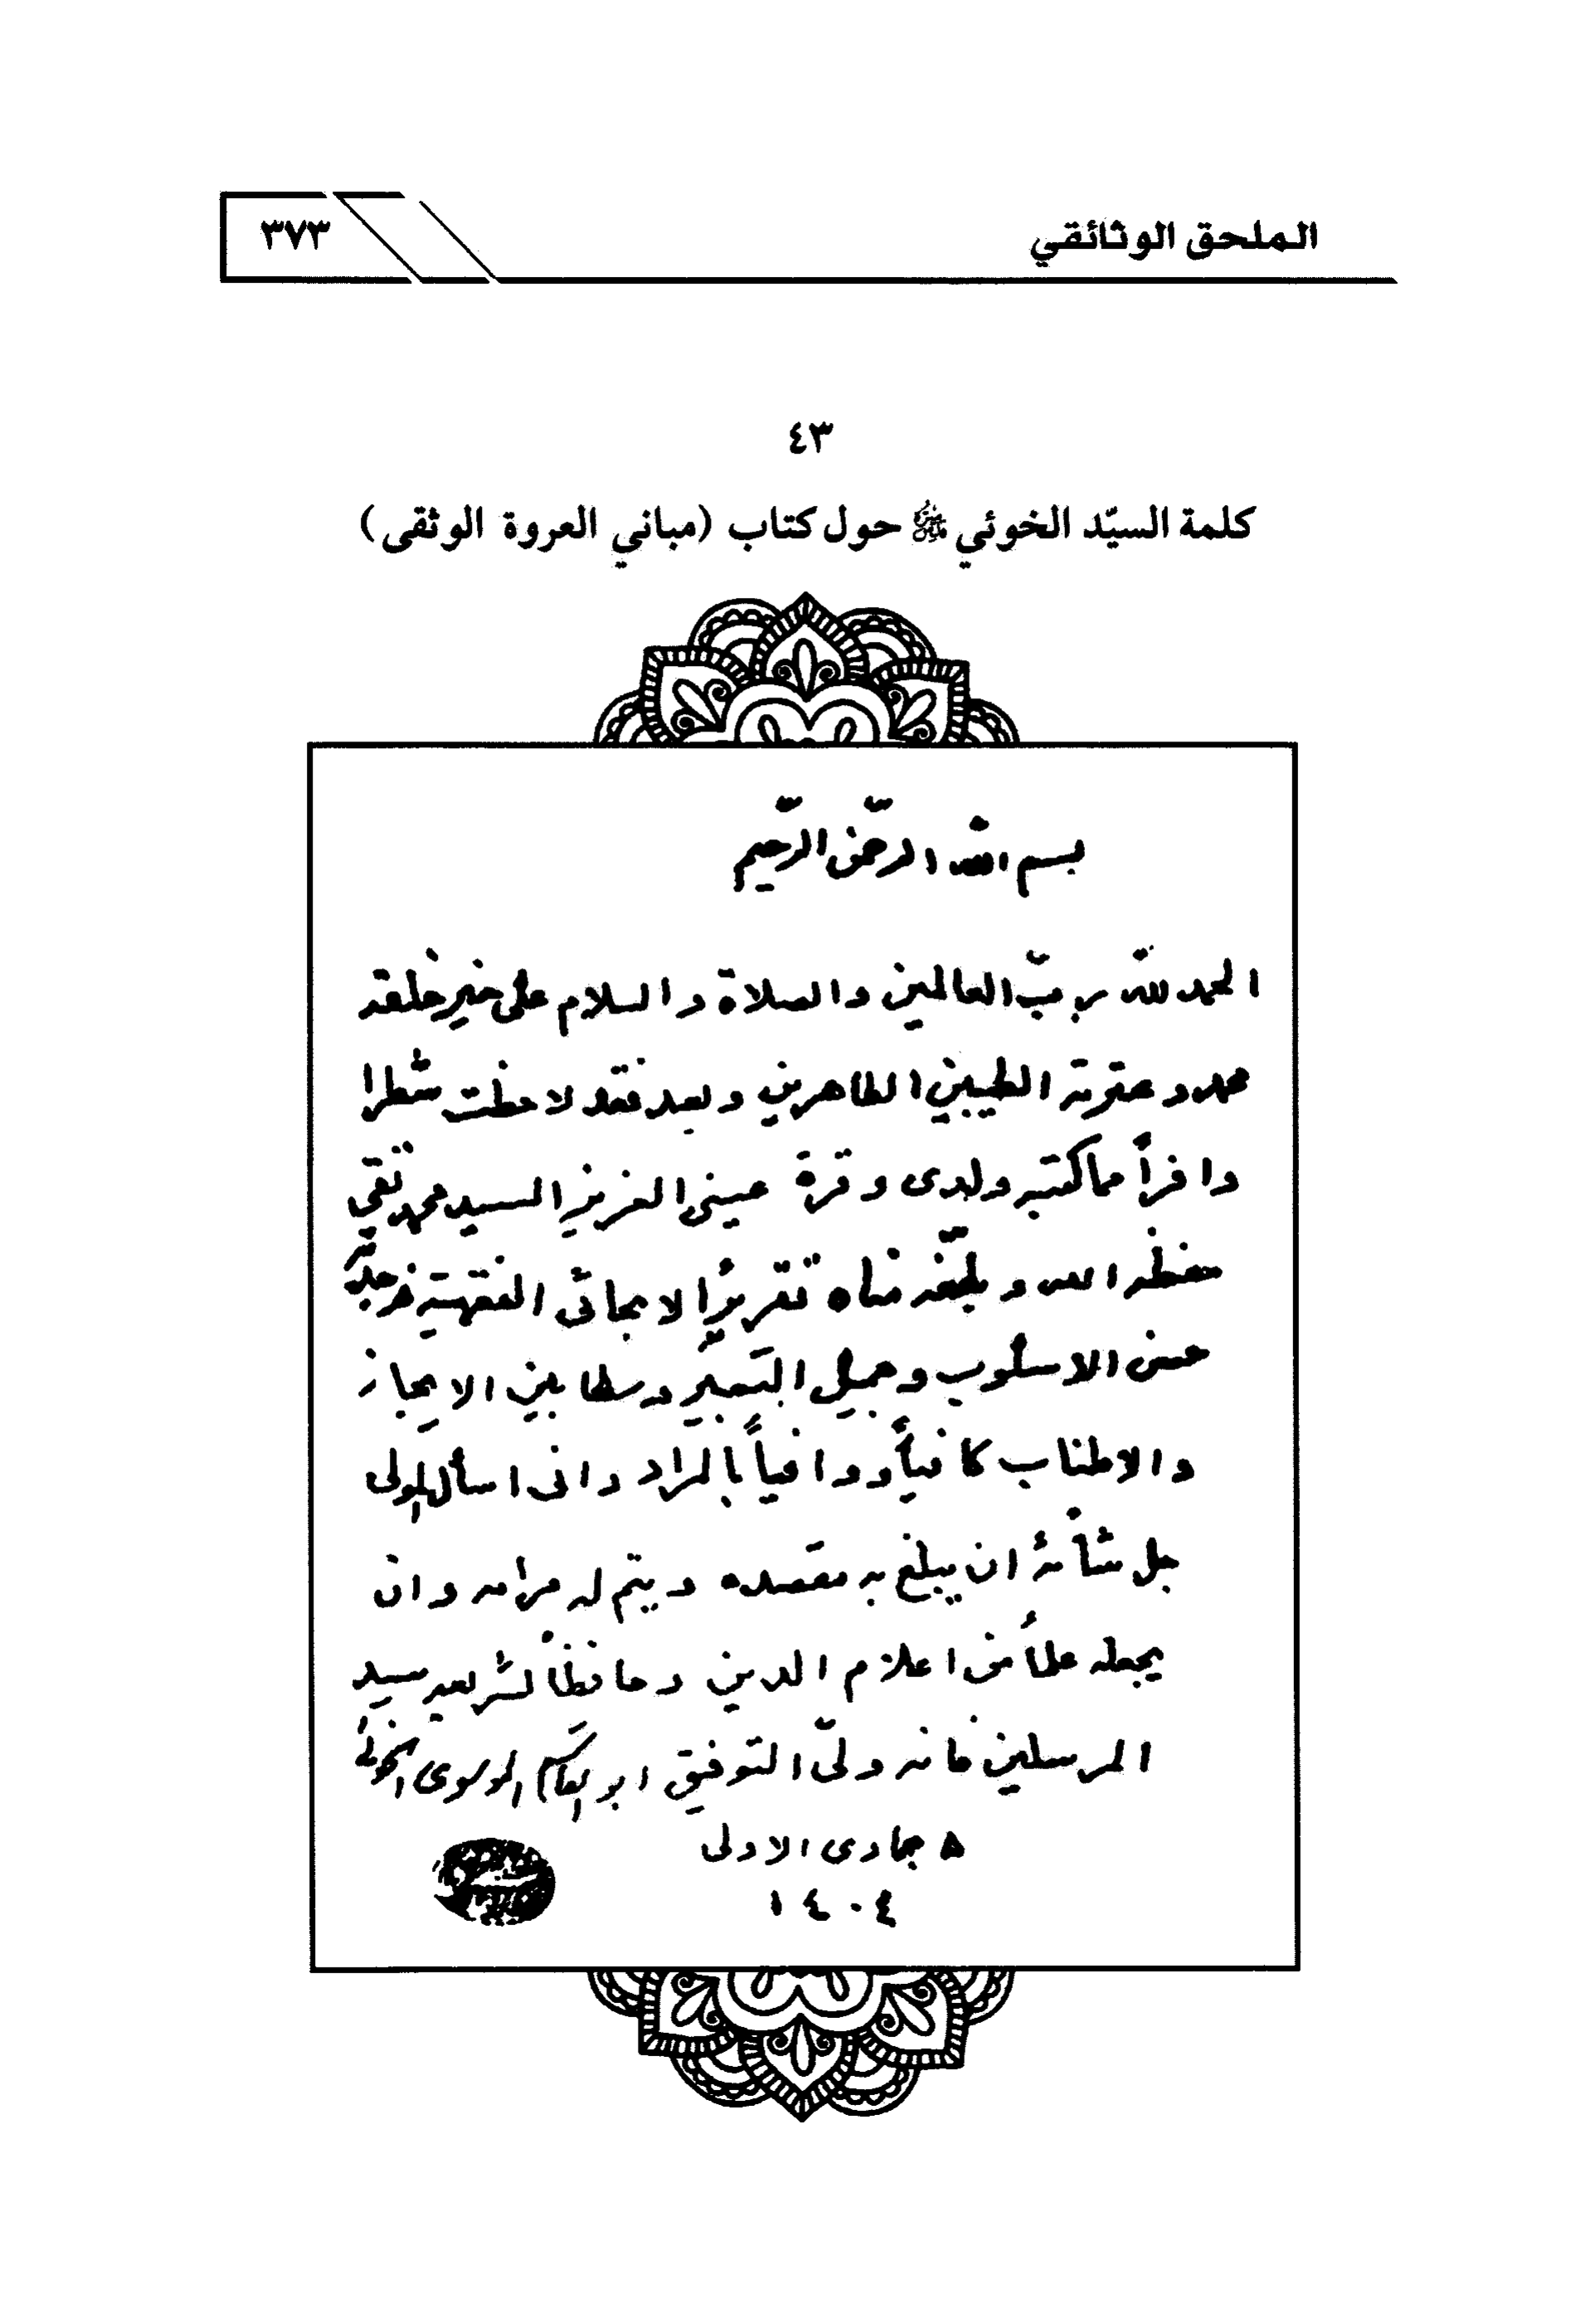 الملحق الوثائقي
٣٧٣
٤٣
كلمة السيّد الخوئي حول كتاب (مباني العروة الوثقى)
بسم الله الرحمن الرحيم
الحمد لله ربّ العالمين والصلاة والسلام على خير خلقه
محمد وعترته الطيبين الطاهرين وبعد فقد لاحظت شطراً
وافراً مما كتبه ولدى وقرة عينى العزيز السيد محمد تقي
حفظه الله وبلّغه مناه تقريراً لابحاثى الفقهية فوجدته
حسن الاسلوب وجميل التعبير وسطا بين الايجاز
والاطناب كافياً ووافياً بالمراد وانى اسأل المولى
جل شأنه ان يبلغ به مقصده ويتم له مرامه وان
يجعله علماً من اعلام الدين وحافظاً لشريعه سيد
المرسلين فانه ولىّ التوفيق ابو القاسم الموسوى الخوئى
٥ جمادى الاولى
١٤٠٤